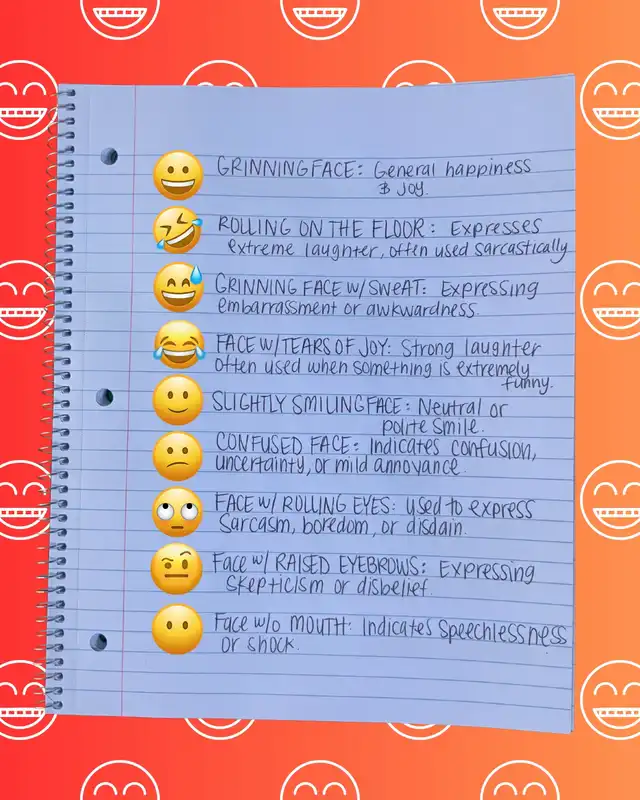 GRINNING FACE: General happiness
& JOY.
ROLLING ON THE FLOOR: Expresses
extreme laughter, often used sarcastically
GRINNING FACE W/SWEAT: Expressing
embarrassment or awkwardness.
FACE W/TEARS OF JOY: Strong laughter
often used when something is extremely
funny.
SLIGHTLY SMILING FACE: Neutral or
polite smile.
CONFUSED FACE: Indicates confusion,
uncertainty, or mild annoyance.
FACE W/ ROLLING EYES: used to express
Sarcasm, boredom, or disdain.
Face w/ RAISED EYEBROWS: Expressing
skepticism or disbelief.
Face w/o MOUTH: Indicates Speechlessness
or shock.